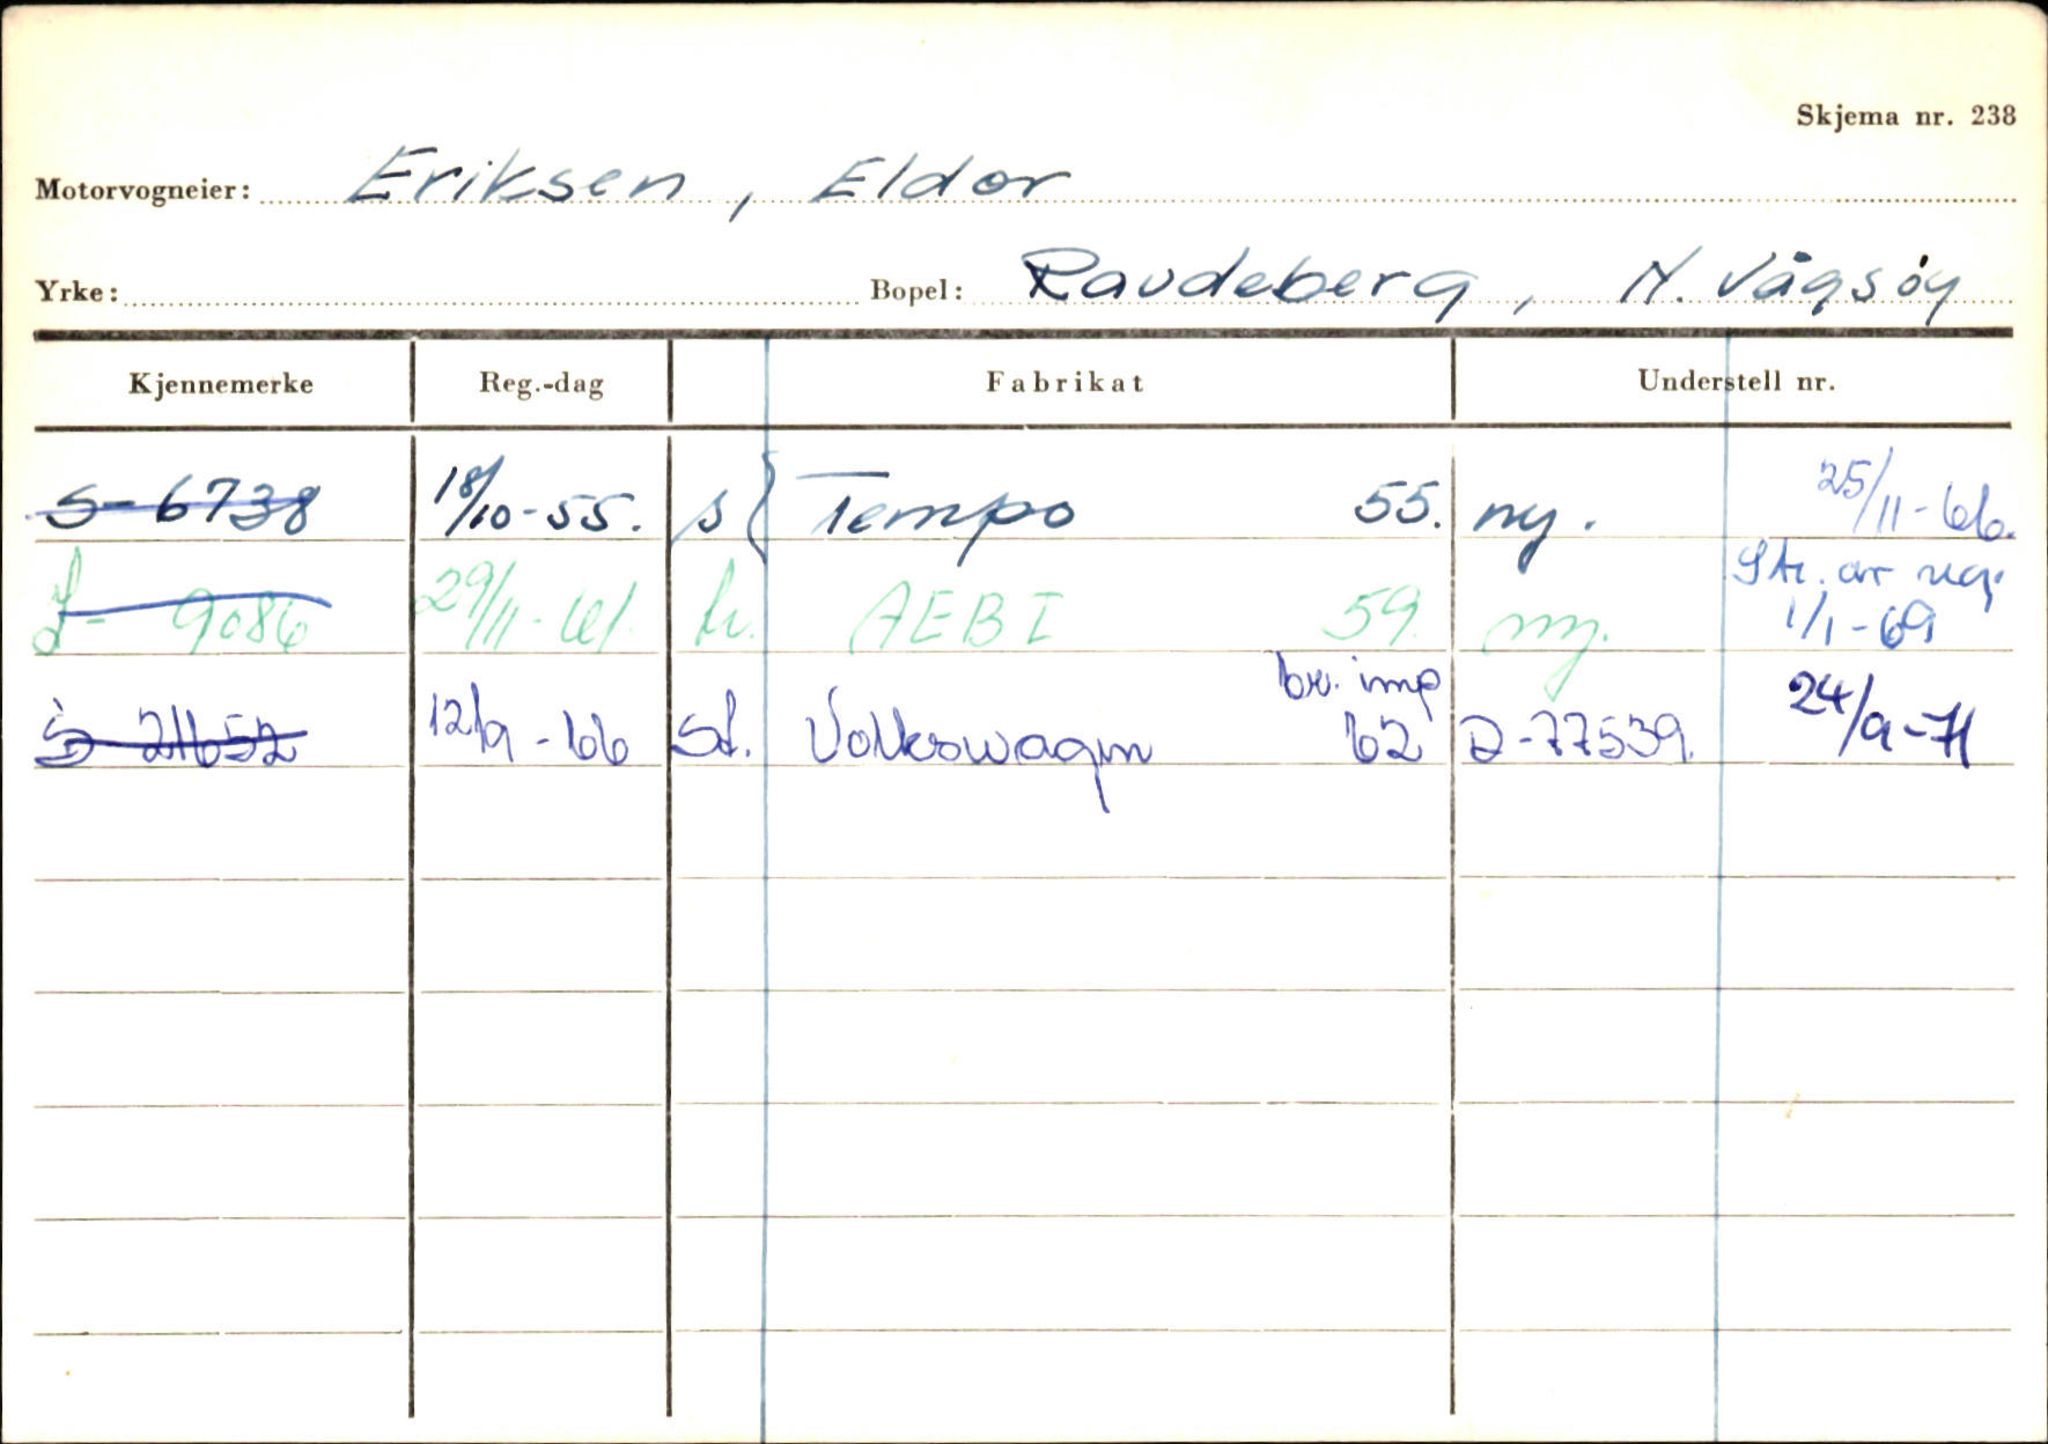 Skjema nr. 238
Motorvogneier: Eriksen, Eldor
Yrke: Bopel: Raudeberg, N. Vågsøy
Kjennemerke Reg.-dag Fabrikat Understell nr.
S-6738 18/10-55. s Tempo 55. ny. 25/11-66.
Str. av reg.
S- 9086 29/11-61. tr. AEBI 59. ny. 1/1-69
br. imp
S-21652 12/9-66 St. Volkswagen 62 D-77539. 24/9-71